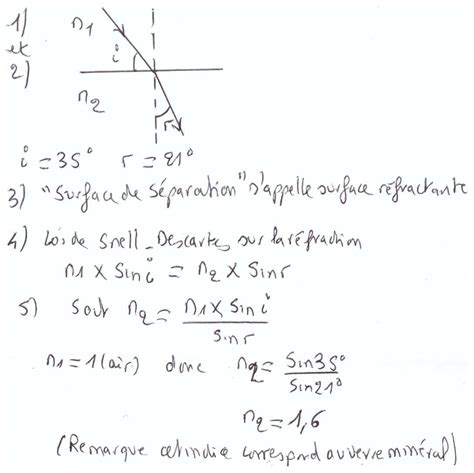 1)
et
2)
n1
i
n2
r
i = 35° r = 21°
3) "Surface de séparation" s'appelle surface réfractante
4) Lois de Snell-Descartes sur la réfraction
n1 x Sin i = n2 x Sin r
5) Soit n2 = n1 x Sin i / Sin r
n1 = 1 (air) donc n2 = Sin 35° / Sin 21°
n2 = 1,6
(Remarque cet indice correspond au verre minéral)